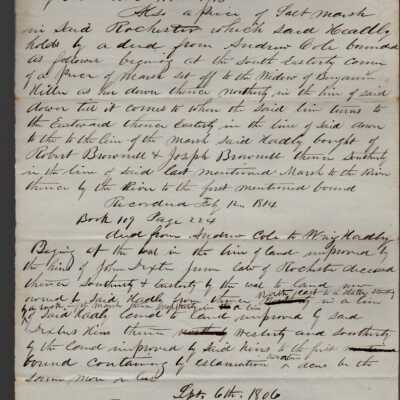 Also a piece of Salt marsh
in Said Rochester which said Headly
holds by a deed from Andrew Cole bounded
as follows begining at the South Easterly corner
of a piece of Marsh set off to the Widow of Benjamin
Hiller as her dower thence northerly in the line of said
dower till it comes to when the Said line turns to
the Eastward thence Easterly in the line of Said dower
to the to the line of the marsh said Hadly bought of
Robert Brownell & Joseph Brownell thence Southerly
in the line of Said last mentioned Marsh to the River
thence by the River to the first mentioned bound
Recorded Feb 12 1814
Book 109 Page 224
deed from Andrew Cole to Headly
Begins at the wal in the line of land improved by
the heirs of John Dexter Late of Rochester deceased
thence Southerly & Easterly by the wal to land now
owned by Said Headly from thence in a line
of Said Headly Land to the Land improved by said
Dexters heirs thence Westerly and Southerly
by the Land improved by Said heirs to the first
bound containing by Estamation acre be the
Same more or less
Sept 6th. 1806